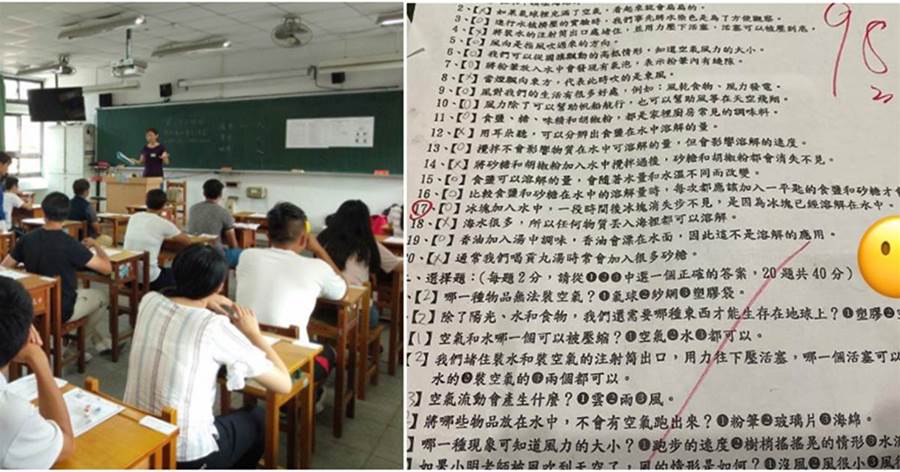 98
2、【X】如果氣球裡充滿了空氣，看起來就會扁扁的。
3、【○】進行水被擠壓的實驗時，我們事先將水染色是為了方便觀察。
4、【X】將裝水的注射筒出口處堵住，並用力壓下活塞，活塞可以被壓到底。
5、【○】風向是指風吹過來的方向。
6、【○】我們可以從國旗飄動的高低情形，知道空氣風力的大小。
7、【○】將粉筆放入水中會發現有氣泡，表示粉筆內有縫隙。
8、【X】當煙飄向東方，代表此時吹的是東風。
9、【○】風對我們的生活有很多好處，例如：風乾食物、風力發電。
10、【○】風力除了可以幫助帆船航行，也可以幫助風箏在天空飛翔。
11、【○】食鹽、糖、味精和胡椒粉，都是家裡廚房常見的調味料。
12、【X】用耳朵聽，可以分辨出食鹽在水中溶解的量。
13、【○】攪拌不會影響物質在水中可溶解的量，但會影響溶解的速度。
14、【X】將砂糖和胡椒粉加入水中攪拌過後，砂糖和胡椒粉都會消失不見。
15、【○】食鹽可以溶解的量，會隨著水量和水溫不同而改變。
16、【○】比較食鹽和砂糖在水中的溶解量時，每次都應該加入一平匙的食鹽和砂糖才
17、【○】冰塊加入水中，一段時間後冰塊消失步不見，是因為冰塊已經溶解在水中。
18、【X】海水很多，所以任何物質丟入海裡都可以溶解。
19、【○】香油加入湯中調味，香油會漂在水面，因此這不是溶解的應用。
0、【X】通常我們喝貢丸湯時常會加入很多砂糖。
、選擇題：(每題2分，請從❶❷❸中選一個正確的答案，20題共40分)
、【2】哪一種物品無法裝空氣？❶氣球❷紗網❸塑膠袋。
【2】除了陽光、水和食物，我們還需要哪種東西才能生存在地球上？❶塑膠❷
【1】空氣和水哪一個可以被壓縮？❶空氣❷水❸都可以。
【2】我們堵住裝水和裝空氣的注射筒出口，用力往下壓活塞，哪一個活塞可以
水的❷裝空氣的❸兩個都可以。
【3】空氣流動會產生什麼？❶雲❷雨❸風。
】將哪些物品放在水中，不會有空氣跑出來？❶粉筆❷玻璃片❸海綿。
】哪一種現象可知道風力的大小？❶跑步的速度❷樹梢搖搖晃的情形❸水
】如果小明老師被風吹到天空了，風的情形是如何？❶沒風❷風很小❸風